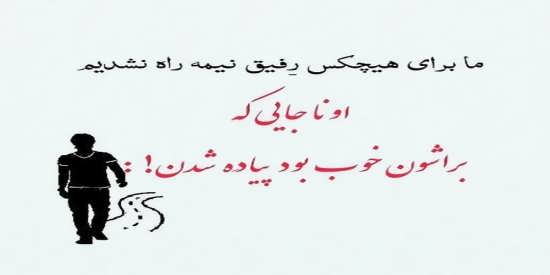 ما برای هیچکس رِفیق نیمه راه نشدیم
اونا جایی که
براشون خوب بود پیاده شدن! :